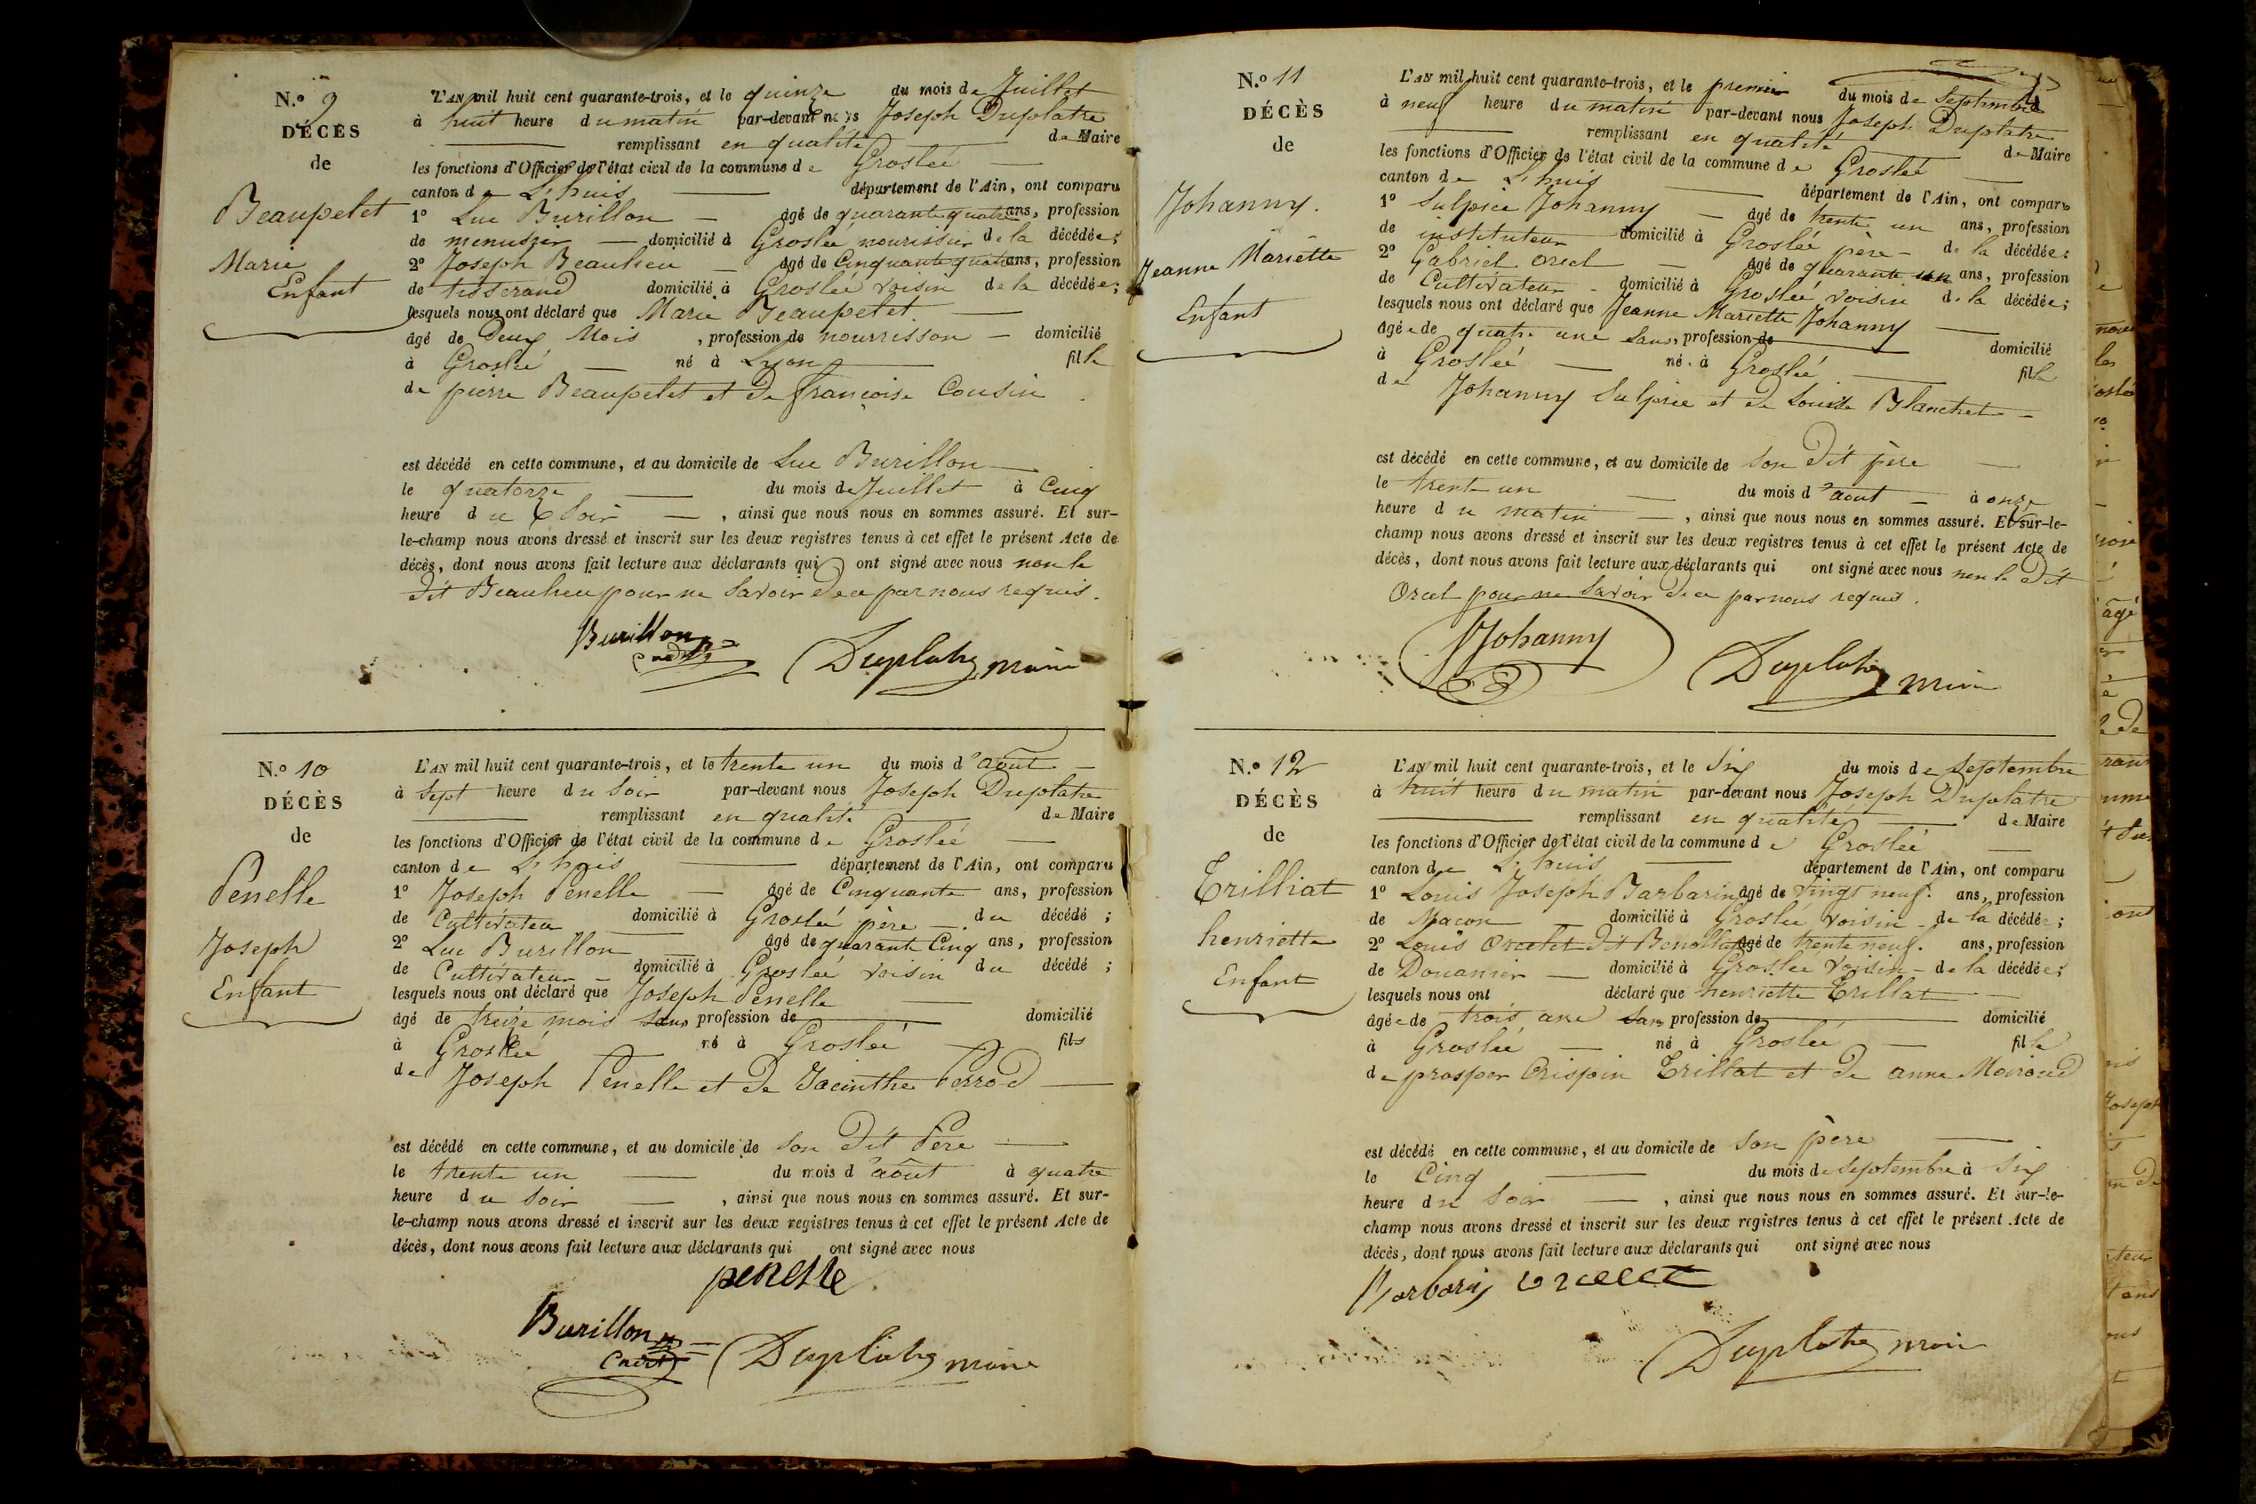 N.o 9
DÉCÈS
de
Beaupelet
Marie
Enfant
L'AN mil huit cent quarante-trois, et le quinze du mois de Juillet
à huit heure du matin par-devant nous Joseph Duplatre
remplissant en qualité de Maire
les fonctions d'Officier de l'état civil de la commune de Groslée
canton de L'huis département de l'Ain, ont comparu
1o Luc Burillon âgé de quarante quatre ans, profession
de menuisier domicilié à Groslée nourissier de la décédée;
2o Joseph Beaulieu âgé de Cinquante quatre ans, profession
de tisserand domicilié à Groslée voisin de la décédée;
lesquels nous ont déclaré que Marie Beaupelet.
âgé de Deux Mois, profession de nourrisson domicilié
à Groslée né à Lyon fille
de pierre Beaupelet et de françoise Cousin
est décédé en cette commune, et au domicile de Luc Burillon
le quatorze du mois de Juillet à Cinq
heure du Soir, ainsi que nous nous en sommes assuré. Et sur-
le-champ nous avons dressé et inscrit sur les deux registres tenus à cet effet le présent Acte de
décès, dont nous avons fait lecture aux déclarants qui ont signé avec nous non le
dit Beaulieu pour ne Savoir de ce par nous requis.
Burillon
cadet
Duplatre maire
N.o 10
DÉCÈS
de
Penelle
Joseph
Enfant
L'AN mil huit cent quarante-trois, et le trente un du mois d'août
à Sept heure du Soir par-devant nous Joseph Duplatre
remplissant en qualité de Maire
les fonctions d'Officier de l'état civil de la commune de Groslée
canton de L'huis département de l'Ain, ont comparu
1o Joseph Penelle âgé de Cinquante ans, profession
de Cultivateur domicilié à Groslée père du décédé;
2o Luc Burillon âgé de quarante Cinq ans, profession
de Cultivateur domicilié à Groslée voisin du décédé;
lesquels nous ont déclaré que Joseph Penelle
âgé de treize mois Sans profession de domicilié
à Groslée né à Groslée fils
de Joseph Penelle et de Jacinthe Perrod
est décédé en cette commune, et au domicile de Son dit Père
le trente un du mois d'août à quatre
heure du Soir, ainsi que nous nous en sommes assuré. Et sur-
le-champ nous avons dressé et inscrit sur les deux registres tenus à cet effet le présent Acte de
décès, dont nous avons fait lecture aux déclarants qui ont signé avec nous
penelle
Burillon
Cadet
Duplatre maire
N.o 11
DÉCÈS
de
Johanny.
Jeanne Mariette
Enfant
L'AN mil huit cent quarante-trois, et le premier du mois de Septembre
à neuf heure du matin par-devant nous Joseph Duplatre
remplissant en qualité de Maire
les fonctions d'Officier de l'état civil de la commune de Groslée
canton de L'huis département de l'Ain, ont comparu
1o Sulpice Johanny âgé de trente un ans, profession
de instituteur domicilié à Groslée père de la décédée;
2o Gabriel Orcel âgé de quarante un ans, profession
de Cultivateur domicilié à Groslée voisin de la décédée;
lesquels nous ont déclaré que Jeanne Mariette Johanny
âgée de quatre ans Sans, profession de domicilié
à Groslée né à Groslée fille
de Johanny Sulpice et de Louise Blanchet
est décédé en cette commune, et au domicile de Son dit père
le trente un du mois d'août à onze
heure du matin, ainsi que nous nous en sommes assuré. Et sur-le-
champ nous avons dressé et inscrit sur les deux registres tenus à cet effet le présent Acte de
décès, dont nous avons fait lecture aux déclarants qui ont signé avec nous non le dit
Orcel pour ne Savoir de ce par nous requis.
Johanny
Duplatre maire
N.o 12
DÉCÈS
de
Trilliat
henriette
Enfant
L'AN mil huit cent quarante-trois, et le Six du mois de Septembre
à huit heure du matin par-devant nous Joseph Duplatre
remplissant en qualité de Maire
les fonctions d'Officier de l'état civil de la commune de Groslée
canton de L'huis département de l'Ain, ont comparu
1o Louis Joseph Barbarin âgé de vingt neuf. ans, profession
de Macon domicilié à Groslée voisin de la décédée;
2o Louis dit âgé de trente neuf. ans, profession
de Douanier domicilié à Groslée voisin de la décédée;
lesquels nous ont déclaré que henriette Trillat
âgée de trois ans Sans profession de domicilié
à Groslée né à Groslée fille
de prosper Crispin Trillat et de anne Moiroud
est décédé en cette commune, et au domicile de Son père
le Cinq du mois de Septembre à Six
heure du Soir, ainsi que nous nous en sommes assuré. Et sur-le-
champ nous avons dressé et inscrit sur les deux registres tenus à cet effet le présent Acte de
décès, dont nous avons fait lecture aux déclarants qui ont signé avec nous
Barbarin
Duplatre maire